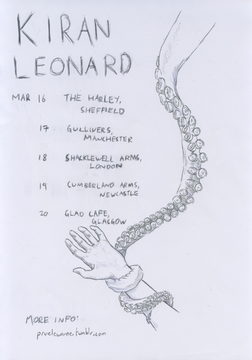 KIRAN
LEONARD
MAR 16 THE HARLEY,
SHEFFIELD
17 GULLIVERS,
MANCHESTER
18 SHACKLEWELL ARMS,
LONDON
19 CUMBERLAND ARMS,
NEWCASTLE
20 GLAD CAFE,
GLASGOW
MORE INFO: